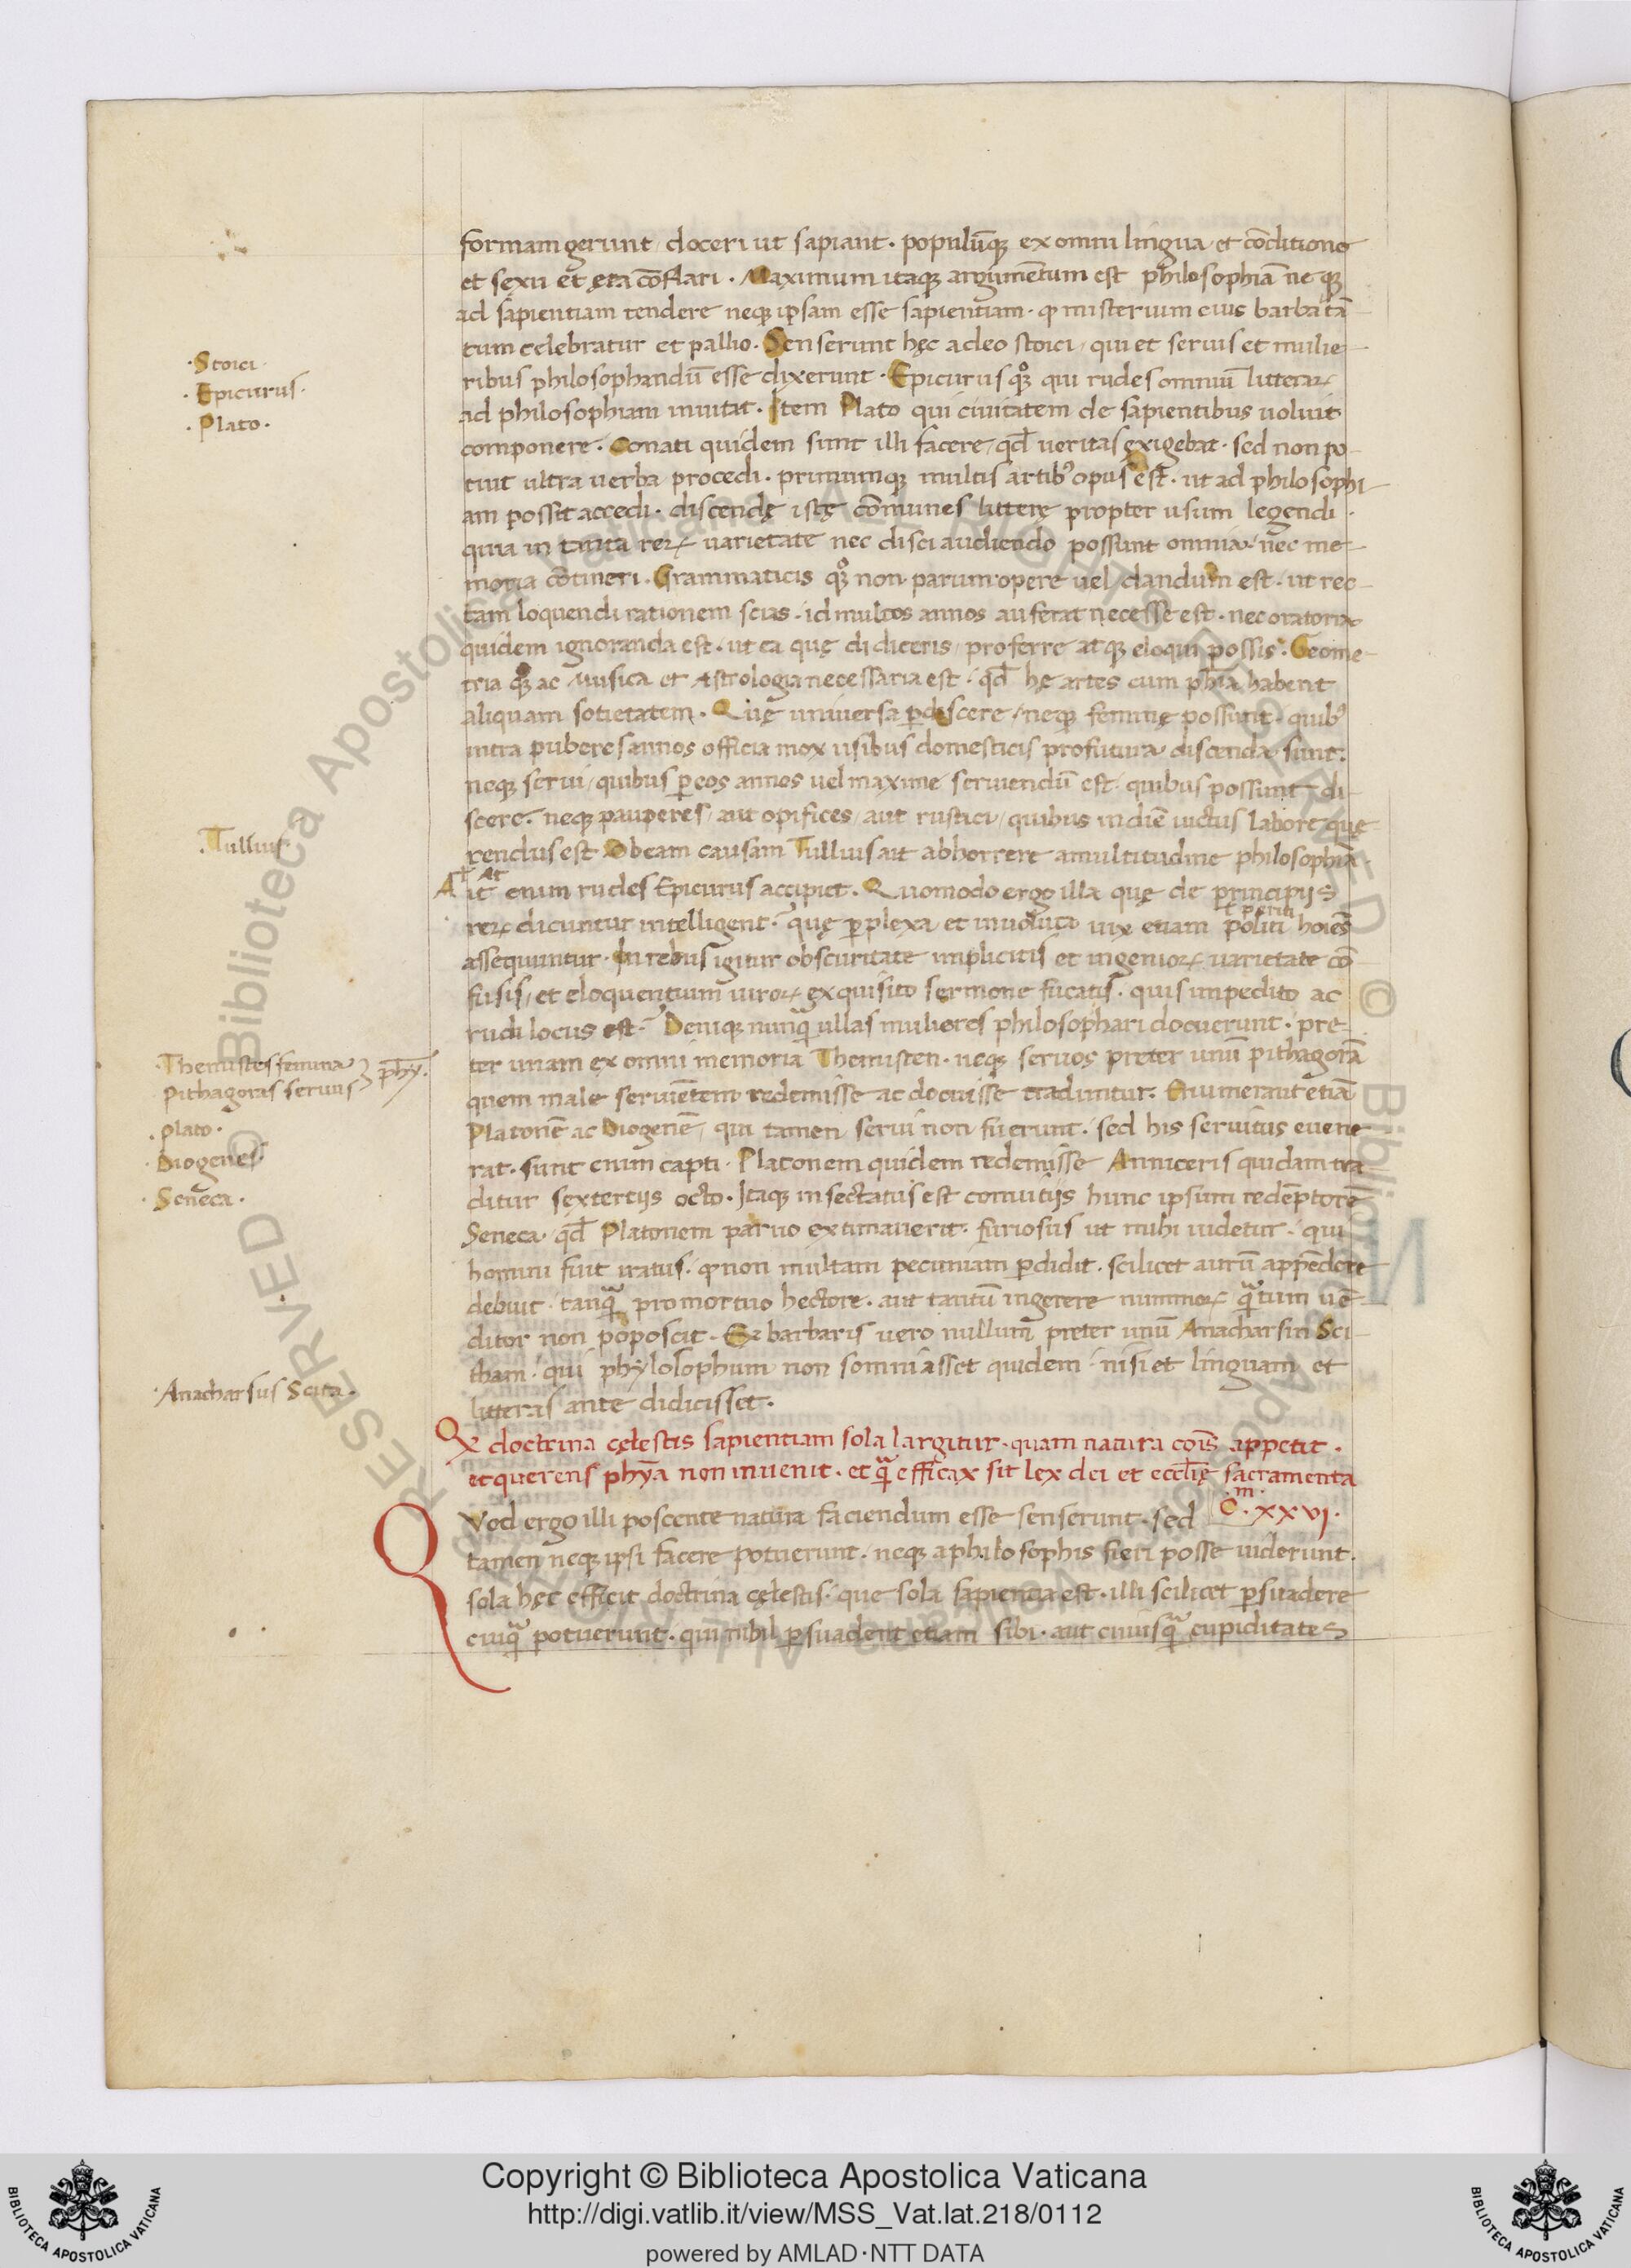 formam gerunt / doceri ut sapiant . populūq; ex omni lingua / et cōditione
et sexu et ęta cōflari . Maximum itaq; argumētum est philosophiā neq;
ad sapientiam tendere neq; ipsam esse sapientiam . ꝙ misterium eius barba tā
tum celebratur et pallio . Senserunt hęc adeo stoici / qui et seruis et mulie-
·Stoici·
ribus philosophandū esse dixerunt . Epicurus qꝫ° qui rudes omniū litterarꝝ
·Epicurus·
ad philosophiam inuitat . Item Plato qui ciuitatem de sapientibus uoluit
·Plato·
componere . Conati quidem sunt illi facere / qd̄ ueritas exigebat . sed non po-
tuit ultra uerba procedi . primumq; multis artibꝰ opus est . ut ad philosophi-
am possit accedi . discendę istę cōmunes litterę propter usum legendi .
quia in tanta rerꝝ uarietate nec disci audiendo possunt omnia / nec me-
moria cōtineri . Grammaticis qꝫ° non parum opere uel dandum est . ut rec-
tam loquendi rationem scias . id multos annos auferat necesse est . nec oratoria
quidem ignoranda est . ut ea quę didiceris / proferre atq; eloqui possis . Geome-
tria qꝫ° ac Musica et Astrologia necessaria est . qd̄ hę artes cum phīa habent
aliquam sotietatem . Quę universa ꝑdiscere / neq; feminę possunt . quibꝰ
intra puberes annos officia mox usibus domesticis profutura discenda sunt .
neq; serui / quibus ꝑ eos annos uel maxime seruiendū est . quibus possunt di-
scere . neq; pauperes / aut opifices / aut rustici / quibus in diē uictus labore quę-
rendus est Ob eam causam Tullius ait abhorrere a multitudine philosophiā .
·Tullius·
ł At
Ait enim rudes Epicurus accipiet . Quomodo ergo illa quę de principijs
ł periti
rerꝝ dicuntur intelligent ? quę ꝑplexa / et inuoluta uix etiam politi hoies̄
assequuntur . In rebus igitur obscuritate implicitis et ingeniorꝝ uarietate cō-
fusis / et eloquentium uirorꝝ exquisito sermone fucatis . quis impedito ac
rudi locus est ? Deniq; nunq̄ ullas mulieres philosophari docuerunt . pre-
ter unam ex omni memoria Themisten . neq; seruos preter unū pithagorā
Themistes femina
Pithagoras seruus } phȳ.
quem male seruiētem redemisse ac docuisse traduntur . Enumerant etiā
Platonē ac Diogenē / qui tamen serui non fuerunt . sed his seruitus euene-
·Plato·
rat . sunt enim capti . Platonem quidem redemisse Anniceris quidam tra-
·Diogenes·
ditur sextertijs octo . Itaq; insectatus est conuitijs hunc ipsum redēptorē
·Seneca·
Seneca . qd̄ Platonem paruo extimauerit . furiosus ut mihi uidetur . qui
homini fuit iratus . ꝙ non multam pecuniam ꝑdidit . scilicet aurū appēdere
debuit . tanq̄ pro mortuo hectore . aut tantū ingerere nummorꝝ q̄tum uē-
ditor non poposcit . Ex barbaris uero nullum preter unū Anacharsin Sci-
tham . qui phylosophum non somniasset quidem . nisi et linguam et
·Anacharsus Scita·
litteras ante didicisset .
Ꝙ doctrina cęlestis sapientiam sola largitur . quam natura cōis appetit .
et querens phȳa non inuenit . et q̄ efficax sit lex dei et eccl̄ię sacramenta
C.m XXVI .
Quod ergo illi poscente natura faciendum esse senserunt . sed
tamen neq; ipsi facere potuerunt / neq; a philosophis fieri posse uiderunt .
sola hęc efficit doctrina cęlestis . que sola sapientia est . illi scilicet ꝑsuadere
cuiq̄ potuerunt . qui nihil ꝑsuadent etiam sibi . aut cuiusq̄ cupiditates
Copyright © Biblioteca Apostolica Vaticana
http://digi.vatlib.it/view/MSS_Vat.lat.218/0112
powered by AMLAD·NTT DATA
BIBLIOTECA APOSTOLICA VATICANA
BIBLIOTECA APOSTOLICA VATICANA